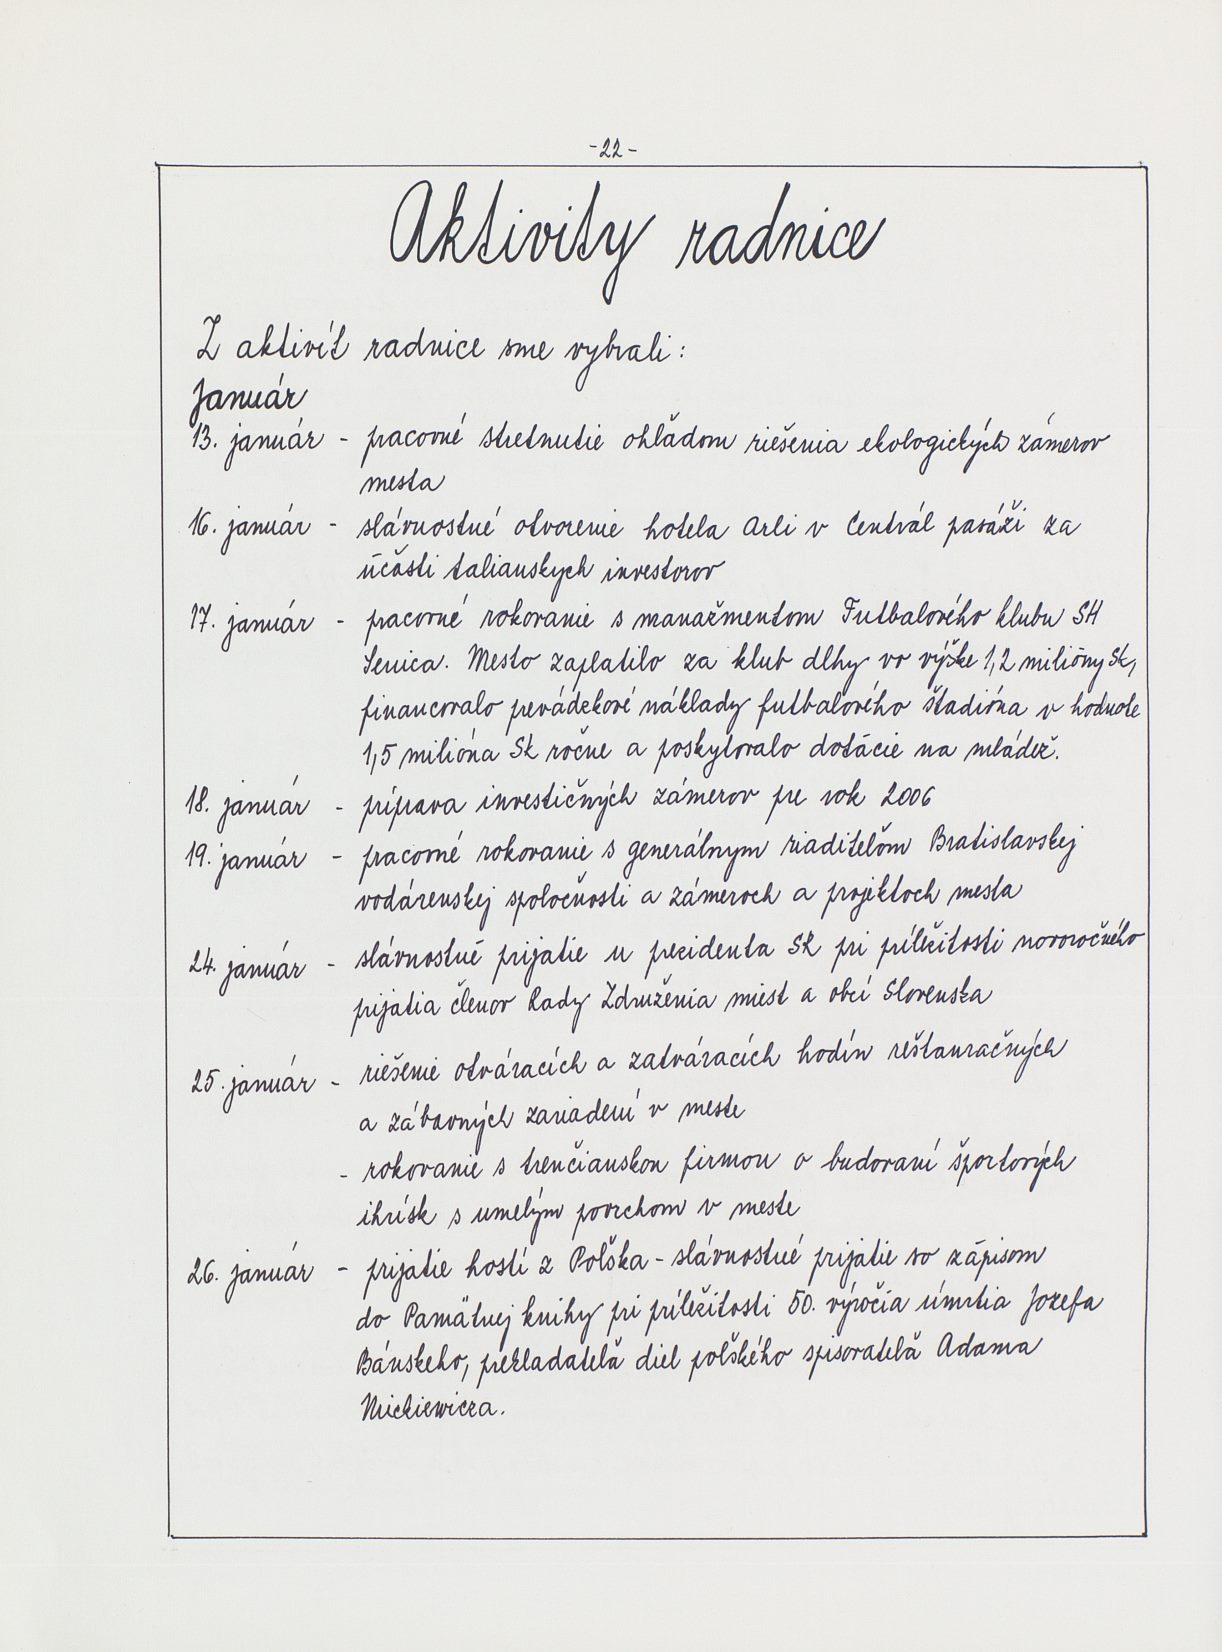 -22-
Aktivity radnice
Z aktivít radnice sme vybrali:
Január
13. január - pracovné stretnutie ohľadom riešenia ekologických zámerov
mesta
16. január - slávnostné otvorenie hotela Arli v Centrál pasáži za
účasti talianskych investorov
17. január - pracovné rokovanie s manažmentom Futbalového klubu SH
Senica. Mesto zaplatilo za klub dlhy vo výške 1,2 milióny Sk,
financovalo prevádzkové náklady futbalového štadióna v hodnote
1,5 milióna Sk ročne a poskytovalo dotácie na mládež.
18. január - príprava investičných zámerov pre rok 2006
19. január - pracovné rokovanie s generálnym riaditeľom Bratislavskej
vodárenskej spoločnosti a zámeroch a projektoch mesta
24. január - slávnostné prijatie u prezidenta SR pri príležitosti novoročného
prijatia členov Rady Združenia miest a obcí Slovenska
25. január - riešenie otváracích a zatváracích hodín reštauračných
a zábavných zariadení v meste
- rokovanie s trenčianskou firmou o budovaní športových
ihrísk s umelým povrchom v meste
26. január - prijatie hostí z Poľska - slávnostné prijatie so zápisom
do Pamätnej knihy pri príležitosti 50. výročia úmrtia Jozefa
Bánskeho, prekladateľa diel poľského spisovateľa Adama
Mickiewicza.